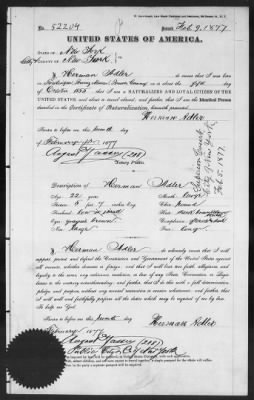 No. 52204
Issued Feb 9. 1877
UNITED STATES OF AMERICA.
STATE OF New York
COUNTY OF New York
I Herman Adler do swear that I was born
on the fifth day
of October 1855 that I am a NATURALIZED AND LOYAL CITIZEN OF THE
UNITED STATES, and about to travel abroad; and further, that I am the Identical Person
described in the Certificate of Naturalization, herewith presented
Herman Adler
Sworn to before me this seventh day
of February 1877
August
Notary Public.
Description of Herman Adler
Age 22 years
Mouth large
Stature 5 feet 7 inches Eng.
Chin round
Forehead
Hair
Eyes brown
Complexion
Nose large
Face long
Feb 5. 1877
I Herman Adler do solemnly swear that I will
support, protect and defend the Constitution and Government of the United States against
all enemies, whether domestic or foreign; and that I will bear true faith, allegiance and
loyalty to the same, any ordinance, resolution or law of any State Convention or Legis-
lature to the contrary notwithstanding; and further, that I do this with a full determination,
pledge and purpose, without any mental reservation or evasion whatsoever; and further that
I will well and faithfully perform all the duties which may be required of me by law.
So help me God.
Herman Adler
Sworn to before me this seventh day
of February 1877
August
Notary Public City & Co New York